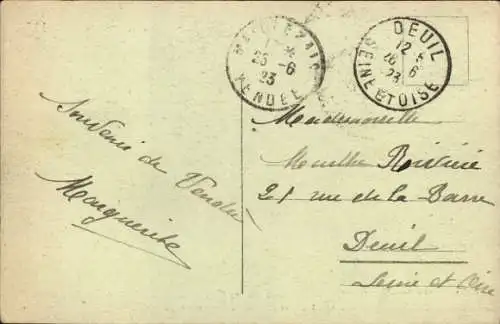 MAILLEZAIS
25 -6
23
VENDEE
DEUIL
26 6
23
SEINE ET OISE
Souvenir de Vendée
Marguerite
Mademoiselle
21 rue de la Barre
Deuil
Seine et Oise